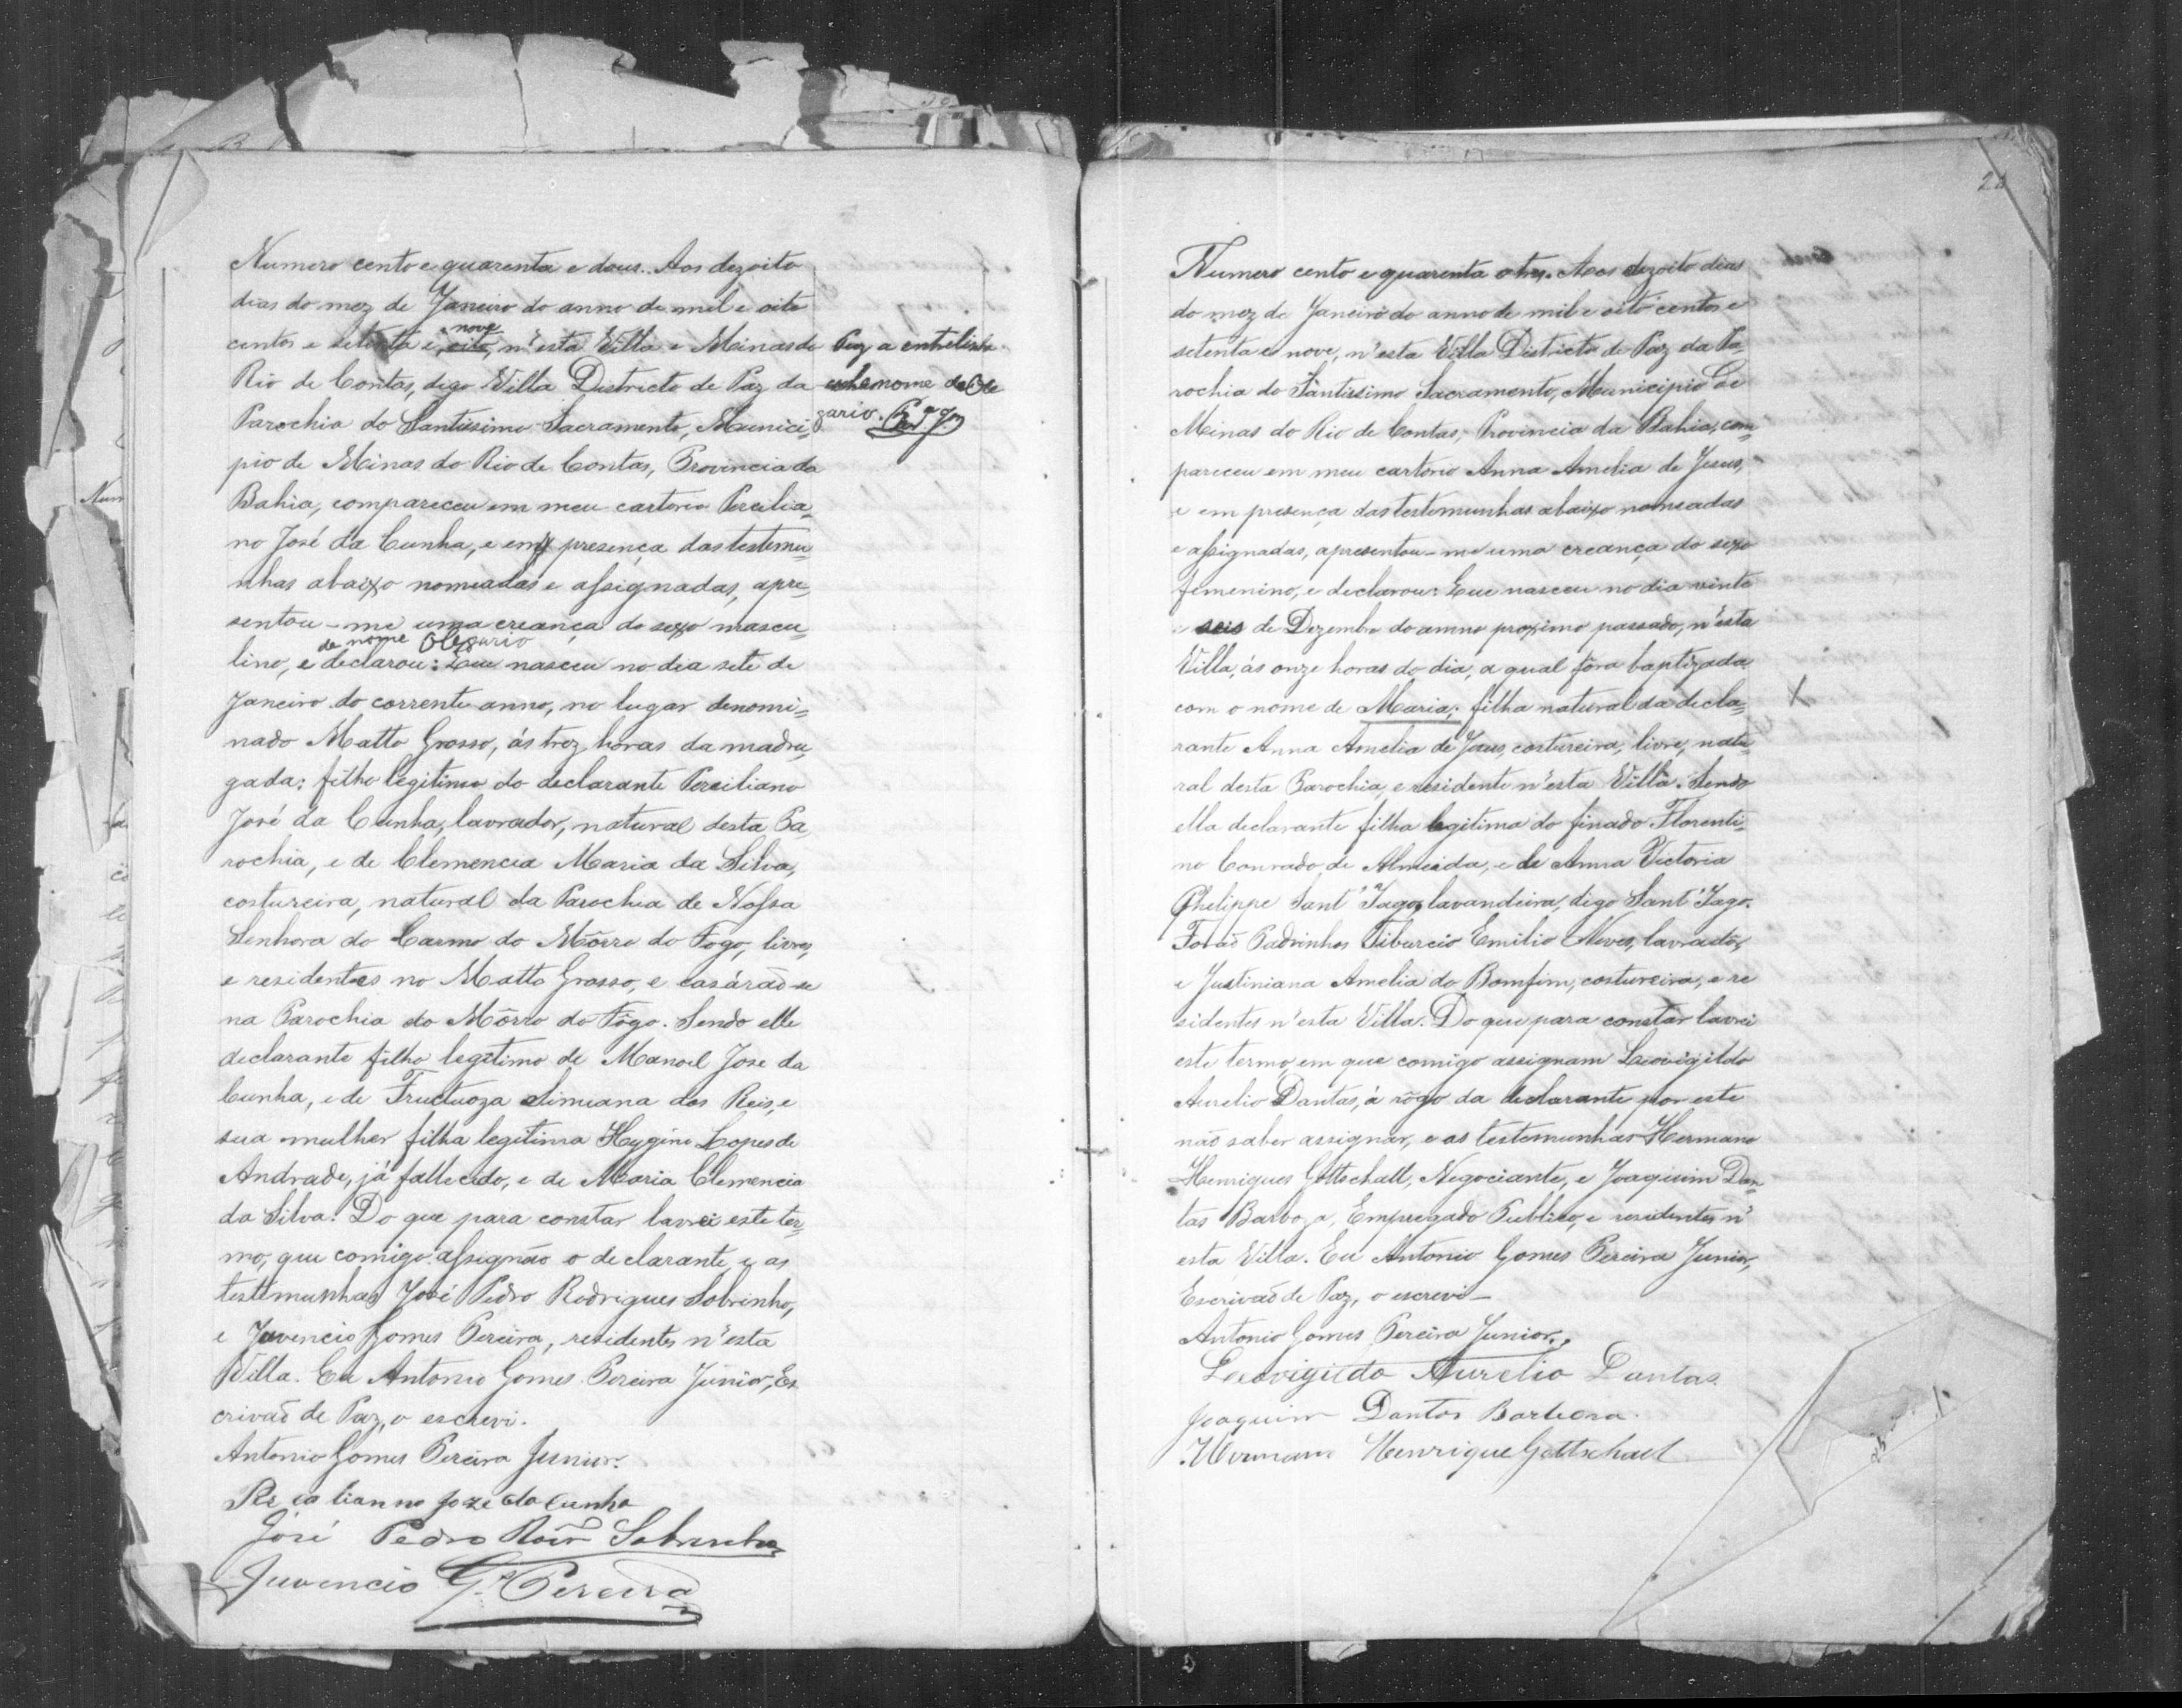 Numero cento e quarenta e dous. Aos dezoito
dias do mez de Janeiro do anno de mil e oito
nove
centos e setenta e oito, n'esta Villa e Minas de
Rio de Contas, digo Villa Districto de Paz da
Parochia do Santissimo Sacramento, Munici=
pio de Minas do Rio de Contas, Provincia da
Bahia, compareceu em meu cartorio Percilia=
no José da Cunha, e em presença das testemu=
nhas abaixo nomeadas e assignadas, apre=
sentou-me uma creança do sexo mascu=
de nome Olegario
lino, e declarou: Que nasceu no dia sete de
Janeiro do corrente anno, no lugar denomi=
nado Matto Grosso, ás trez horas da madru=
gada: filho legitimo do declarante Perciliano
José da Cunha, lavrador, natural desta Pa
rochia, e de Clemencia Maria da Silva,
costureira, natural da Parochia de Nossa
Senhora do Carmo do Môrro do Fogo, livres,
e residentes no Matto Grosso, e casárão-se
na Parochia do Môrro do Fôgo. Sendo elle
declarante filho legitimo de Manoel Jose da
Cunha, e de Fructuoza dos Reis, e
sua mulher filha legitima Hygino Lopes de
Andrade, já fallecido, e de Maria Clemencia
da Silva. Do que para constar lavrei este ter=
mo, que comigo assignão o declarante, e as
testemunhas José Pedro Rodrigues Sobrinho,
e Juvencio Gomes Pereira, residentes n'esta
Villa. Eu Antonio Gomes Pereira Junior, Es
crivaõ de Paz, o escrevi.
Antonio Gomes Pereira Junior.
Per ca lianno Joze da Cunha
José Pedro Roiz Sobrinho
Juvencio Gs. Pereira
Fiz a entrelinha
nome de Ole
gario.
Numero cento e quarenta e tres. Aos dezoito dias
do mez de Janeiro do anno de mil e oito centos e
setenta e nove, n'esta Villa Districto de Paz da Pa=
rochia do Santissimo Sacramento, Municipio de
Minas do Rio de Contas, Provincia da Bahia, com=
pareceu em meu cartorio Anna Amelia de Jesus,
e em presença das testemunhas abaixo nomeadas
e assignadas, apresentou-me uma creança do sexo
femenino, e declarou: Que nasceu no dia vinte
e seis de Dezembro do anno proximo passado, n'esta
Villa, ás onze horas do dia, a qual fôra baptizada
com o nome de Maria; filha natural da decla=
rante Anna Amelia de Jesus, costureira, livre, natu
ral desta Parochia, e residente n'esta Villa. Sendo
ella declarante filha legitima do finado Florenti=
no Conrado de Almeida, e de Anna Victoria
Phelippe Sant'Iago, lavandeira, digo Sant'Iago.
Foraõ Padrinhos Tiburcio Emilio Neves, lavrador,
e Justiniana Amelia do Bomfim, costureira, e re
sidentes n'esta Villa. Do que para constar lavrei
este termo, em que comigo assignam Leovigildo
Aurelio Dantas, á rôgo da declarante por esta
não saber assignar, e as testemunhas Hermano
Henriques Gottschall, Negociante, e Joaquim Dan
tas Barboza, Empregado Publico, e residentes n'
esta Villa. Eu Antonio Gomes Pereira Junior,
Escrivaõ de Paz, o escrevi—
Antonio Gomes Pereira Junior.
Leovigildo Aurelio Dantas.
Joaquim Dantas Barboza.
Hermano Henrique Gottschall